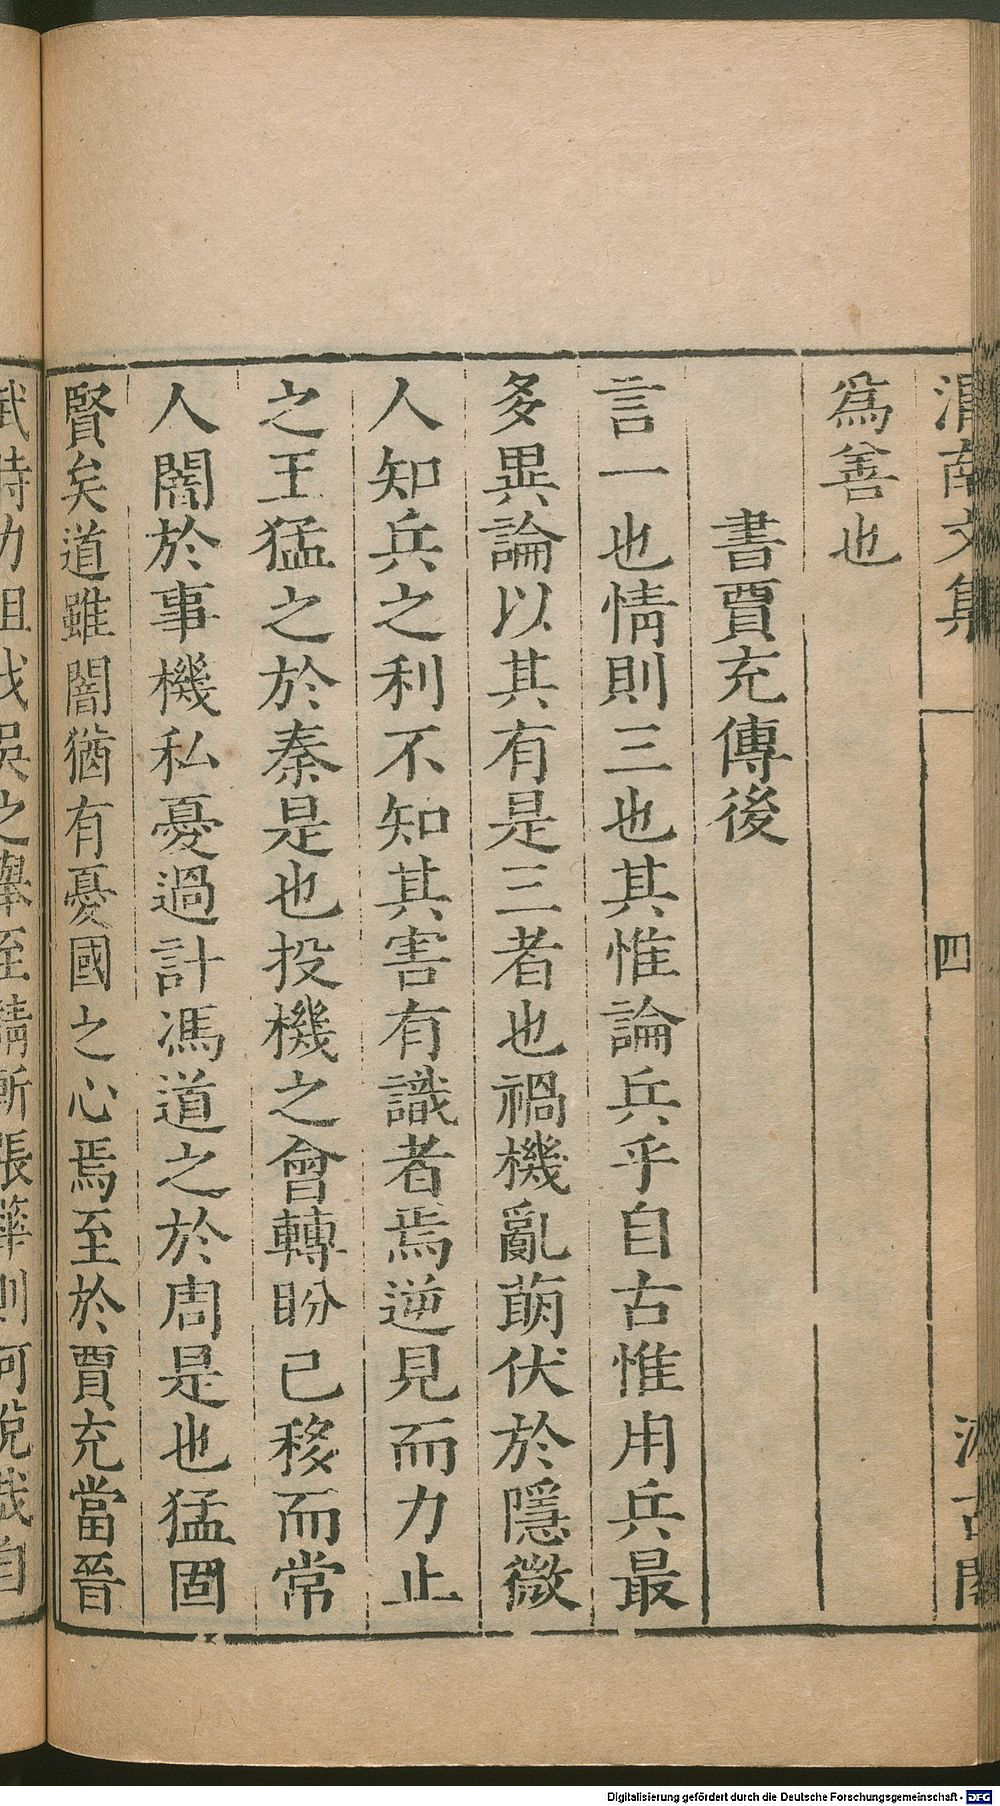 渭南文集 四 汲古閣
為善也
書賈充傳後
言一也情則三也其惟論兵乎自古惟用兵最
多異論以其有是三者也禍機亂萌伏於隱微
人知兵之利不知其害有識者焉逆見而力止
之王猛之於秦是也投機之會轉盼已移而常
人闇於事機私憂過計馮道之於周是也猛固
賢矣道雖闇猶有憂國之心焉至於賈充當晉
武時力沮伐吳之舉至請斬張華則何說哉自
Digitalisierung gefördert durch die Deutsche Forschungsgemeinschaft - DFG